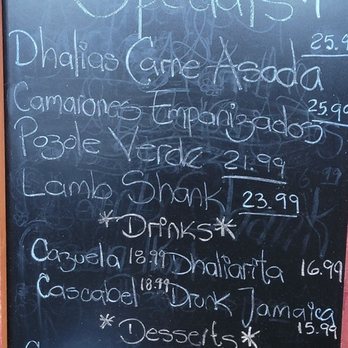 Specials!
25.9
Dhalias Carne Asada
Camarones Empanizados 25.99
Pozole Verde 21.99
Lamb Shank 23.99
*Drinks*
Cazuela 18.99 Dhaliarita 16.99
Cascabel 18.99 Drunk Jamaica
15.99
*Desserts*